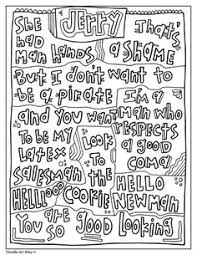 She
had
Man hands
Jerry
That's
a shame
But I don't want to
be a pirate
I'm a
man who
respects
a good
coma
and you want
to be my
latex
salesman
Look
To
the
Cookie
HELLLOOO
HELLO
NEWMAN
You are so good looking
Doodle Art Alley ©